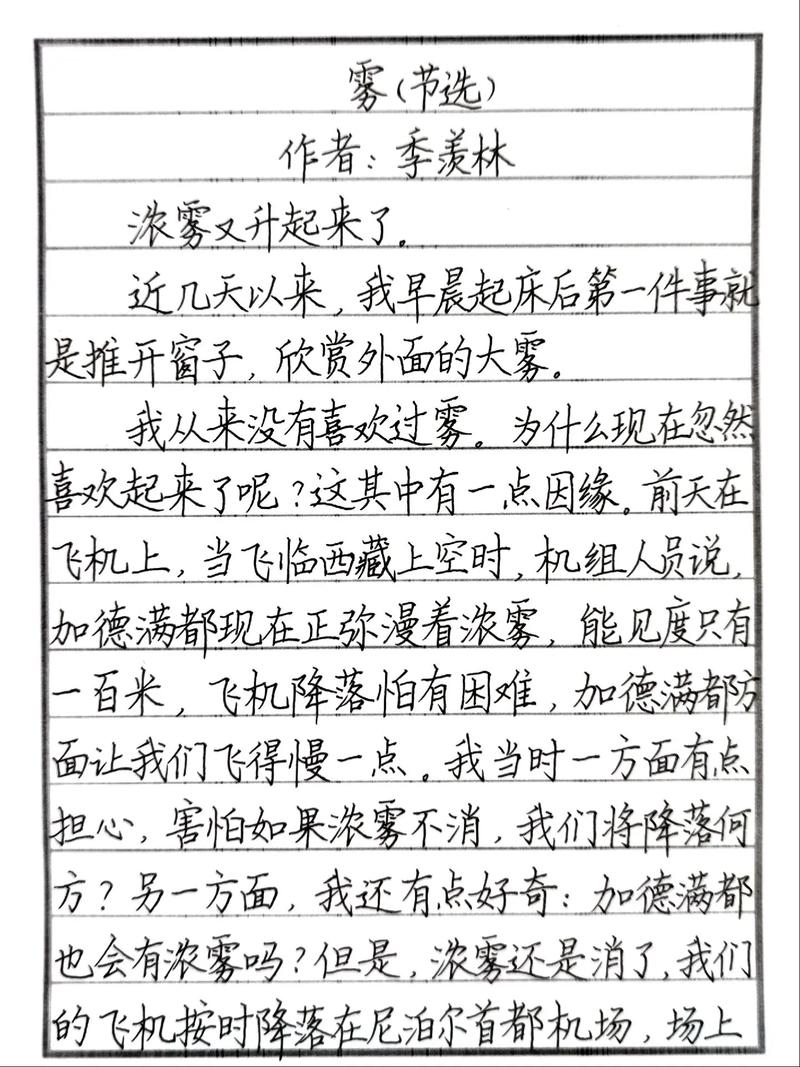 雾(节选)
作者：季羡林
浓雾又升起来了。
近几天以来，我早晨起床后第一件事就
是推开窗子，欣赏外面的大雾。
我从来没有喜欢过雾。为什么现在忽然
喜欢起来了呢？这其中有一点因缘。前天在
飞机上，当飞临西藏上空时，机组人员说，
加德满都现在正弥漫着浓雾，能见度只有
一百米，飞机降落怕有困难，加德满都方
面让我们飞得慢一点。我当时一方面有点
担心，害怕如果浓雾不消，我们将降落何
方？另一方面，我还有点好奇：加德满都
也会有浓雾吗？但是，浓雾还是消了，我们
的飞机按时降落在尼泊尔首都机场，场上